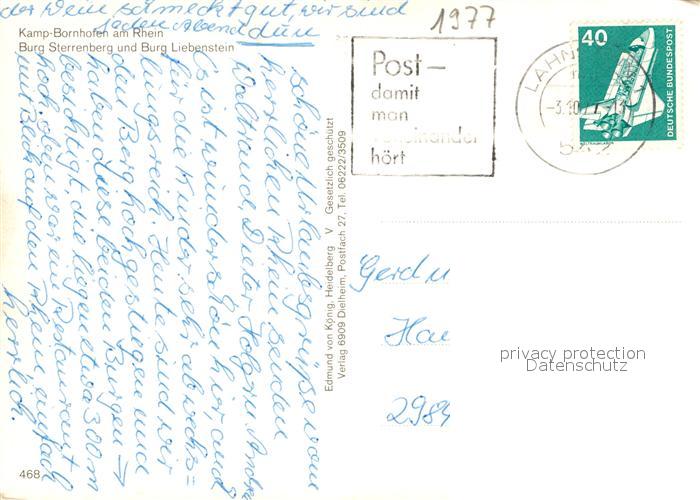 der Wein schmeckt gut, wir sind
jeden Abend dun
Kamp-Bornhofen am Rhein
Burg Sterrenberg und Burg Liebenstein
1977
Post-
damit
man
einander
hört
LAHN
40
DEUTSCHE BUNDESPOST
schöne Urlaubsgrüße vom
herrlichen Rhein senden
Waltraud Dieter Holger u. Andre
Es ist wunderschön hier, und
für die Kinder sehr abwechs=
lungsreich. Heute sind wir
den Berg hochgestiegen und
haben diese beiden Burgen →
besichtigt die liegen etwa 300 m
hoch, oben waren Restaurant
mit Blick auf den Rhein einfach
herrlich.
Edmund von König, Heidelberg V Gesetzlich geschützt
Verlag 6909 Dielheim, Postfach 27, Tel. 06222/3509
Gerd u
Hau
2984
privacy protection
Datenschutz
468